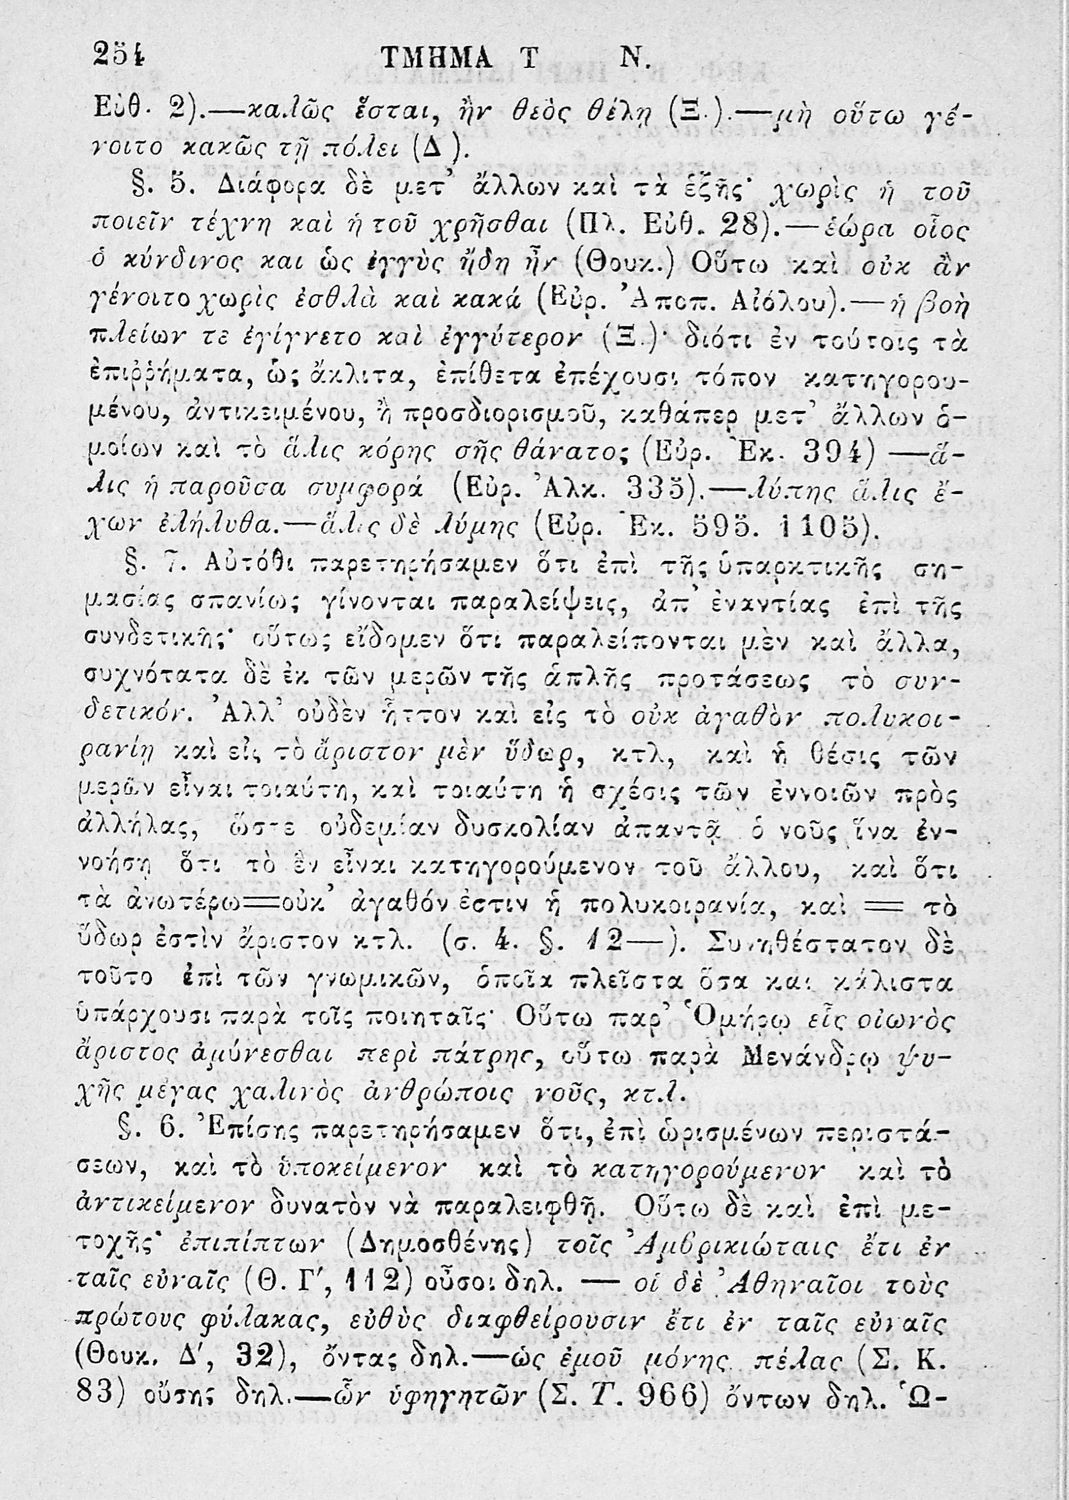 254 ΤΜΗΜΑ Τ Ν.
Εὐθ. 2).—καλῶς ἔσται, ἢν θεὸς θέλῃ (Ξ.).—μὴ οὕτω γέ-
νοιτο κακῶς τῇ πόλει (Δ ).
§. 5. Διάφορα δὲ μετ' ἄλλων καὶ τὰ ἑξῆς· χωρὶς ἡ τοῦ
ποιεῖν τέχνη καὶ ἡ τοῦ χρῆσθαι (Πλ. Εὐθ. 28).—ἑώρα οἷος
ὁ κύνδινος και ὡς ἐγγὺς ἤδη ἦν (Θουκ.) Οὕτω καὶ οὐκ ἂν
γένοιτο χωρὶς ἐσθλὰ καὶ κακά (Εὐρ. Ἀποπ. Αἰόλου).—ἡ βοὴ
πλείων τε ἐγίγνετο καὶ ἐγγύτερον (Ξ.)· διότι ἐν τούτοις τὰ
ἐπιῤῥήματα, ὡς ἄκλιτα, ἐπίθετα ἐπέχουσι τόπον κατηγορου-
μένου, ἀντικειμένου, ἢ προσδιορισμοῦ, καθάπερ μετ' ἄλλων ὁ-
μοίων καὶ τὸ ἅλις κόρης σῆς θάνατος (Εὐρ. Ἑκ. 394) —ἅ-
λις ἡ παροῦσα συμφορά (Εὐρ. Ἀλκ. 335).—λύπης ἅλις ἔ-
χων ἐλήλυθα.—ἅλις δὲ λύμης (Εὐρ. Ἑκ. 595. 1105).
§. 7. Αὐτόθι παρετηρήσαμεν ὅτι ἐπὶ τῆς ὑπαρκτικῆς ση-
μασίας σπανίως γίνονται παραλείψεις, ἀπ' ἐναντίας ἐπὶ τῆς
συνδετικῆς· οὕτως εἴδομεν ὅτι παραλείπονται μὲν καὶ ἄλλα,
συχνότατα δὲ ἐκ τῶν μερῶν τῆς ἁπλῆς προτάσεως τὸ συν-
δετικόν. Ἀλλ' οὐδὲν ἧττον καὶ εἰς τὸ οὐκ ἀγαθὸν πολυκοι-
ρανίη καὶ εἰς τὸ ἄριστον μὲν ὕδωρ, κτλ, καὶ ἡ θέσις τῶν
μερῶν εἶναι τοιαύτη, καὶ τοιαύτη ἡ σχέσις τῶν ἐννοιῶν πρὸς
ἀλλήλας, ὥστε οὐδεμίαν δυσκολίαν ἀπαντᾷ ὁ νοῦς ἵνα ἐν-
νοήσῃ ὅτι τὸ ἓν εἶναι κατηγορούμενον τοῦ ἄλλου, καὶ ὅτι
τὰ ἀνωτέρω=οὐκ' ἀγαθόν ἐστιν ἡ πολυκοιρανία, καὶ = τὸ
ὕδωρ ἐστὶν ἄριστον κτλ. (σ. 4. §. 12—). Συνηθέστατον δὲ
τοῦτο ἐπὶ τῶν γνωμικῶν, ὁποῖα πλεῖστα ὅσα και κάλιστα
ὑπάρχουσι παρὰ τοῖς ποιηταῖς· Οὕτω παρ' Ὁμήρῳ εἷς οἰωνὸς
ἄριστος ἀμύνεσθαι περὶ πάτρης, οὕτω παρὰ Μενάνδρῳ ψυ-
χῆς μέγας χαλινὸς ἀνθρώποις νοῦς, κτλ.
§. 6. Ἐπίσης παρετηρήσαμεν ὅτι, ἐπὶ ὡρισμένων περιστά-
σεων, καὶ τὸ ὑποκείμενον καὶ τὸ κατηγορούμενον καὶ τὸ
ἀντικείμενον δυνατὸν νὰ παραλειφθῇ. Οὕτω δὲ καὶ ἐπὶ με-
τοχῆς· ἐπιπίπτων (Δημοσθένης) τοῖς Ἀμβρικιώταις ἔτι ἐν
ταῖς εὐναῖς (Θ. Γ', 112) οὖσοι δηλ. — οἱ δὲ Ἀθηναῖοι τοὺς
πρώτους φύλακας, εὐθὺς διαφθείρουσιν ἔτι ἐν ταῖς εὐναῖς
(Θουκ. Δ', 32), ὄντας δηλ.—ὡς ἐμοῦ μόνης πέλας (Σ. Κ.
83) οὔσης δηλ.—ὧν ὑφηγητῶν (Σ. Τ. 966) ὄντων δηλ. Ὡ-